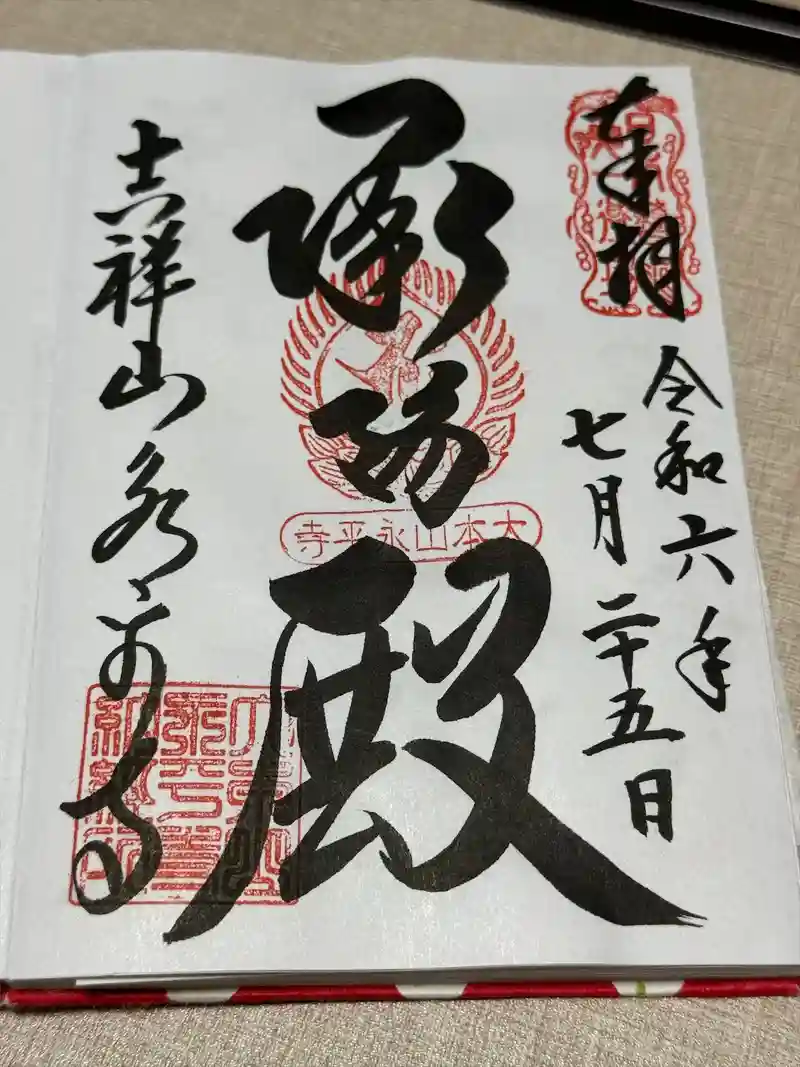 奉拝
令和六年
七月二十五日
承陽殿
大本山永平寺
吉祥山永平寺